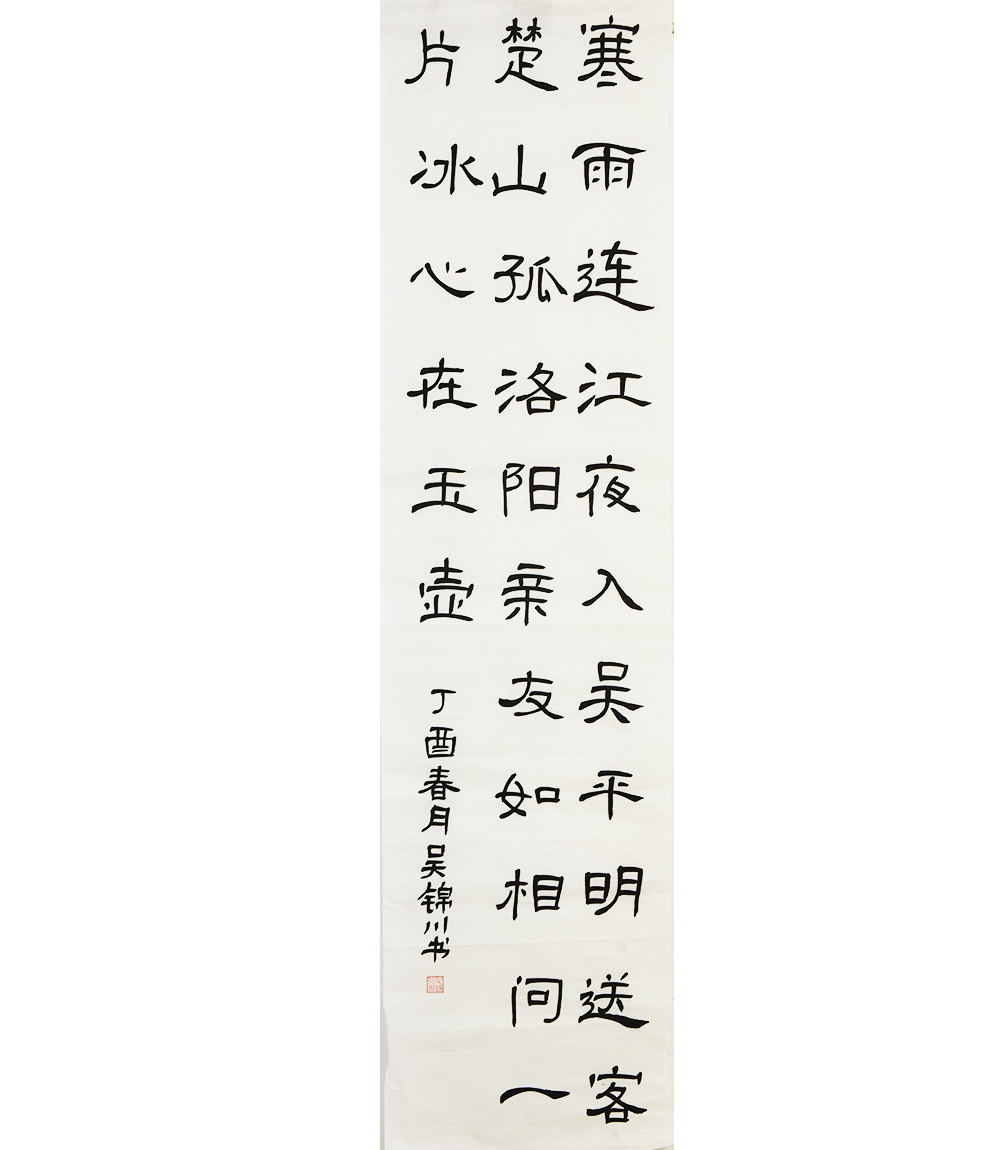 寒雨连江夜入吴平明送客
楚山孤洛阳亲友如相问一
片冰心在玉壶 丁酉春月吴锦川书